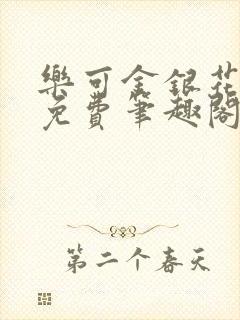 樂可金銀花
免費筆趣閣
第二个春天